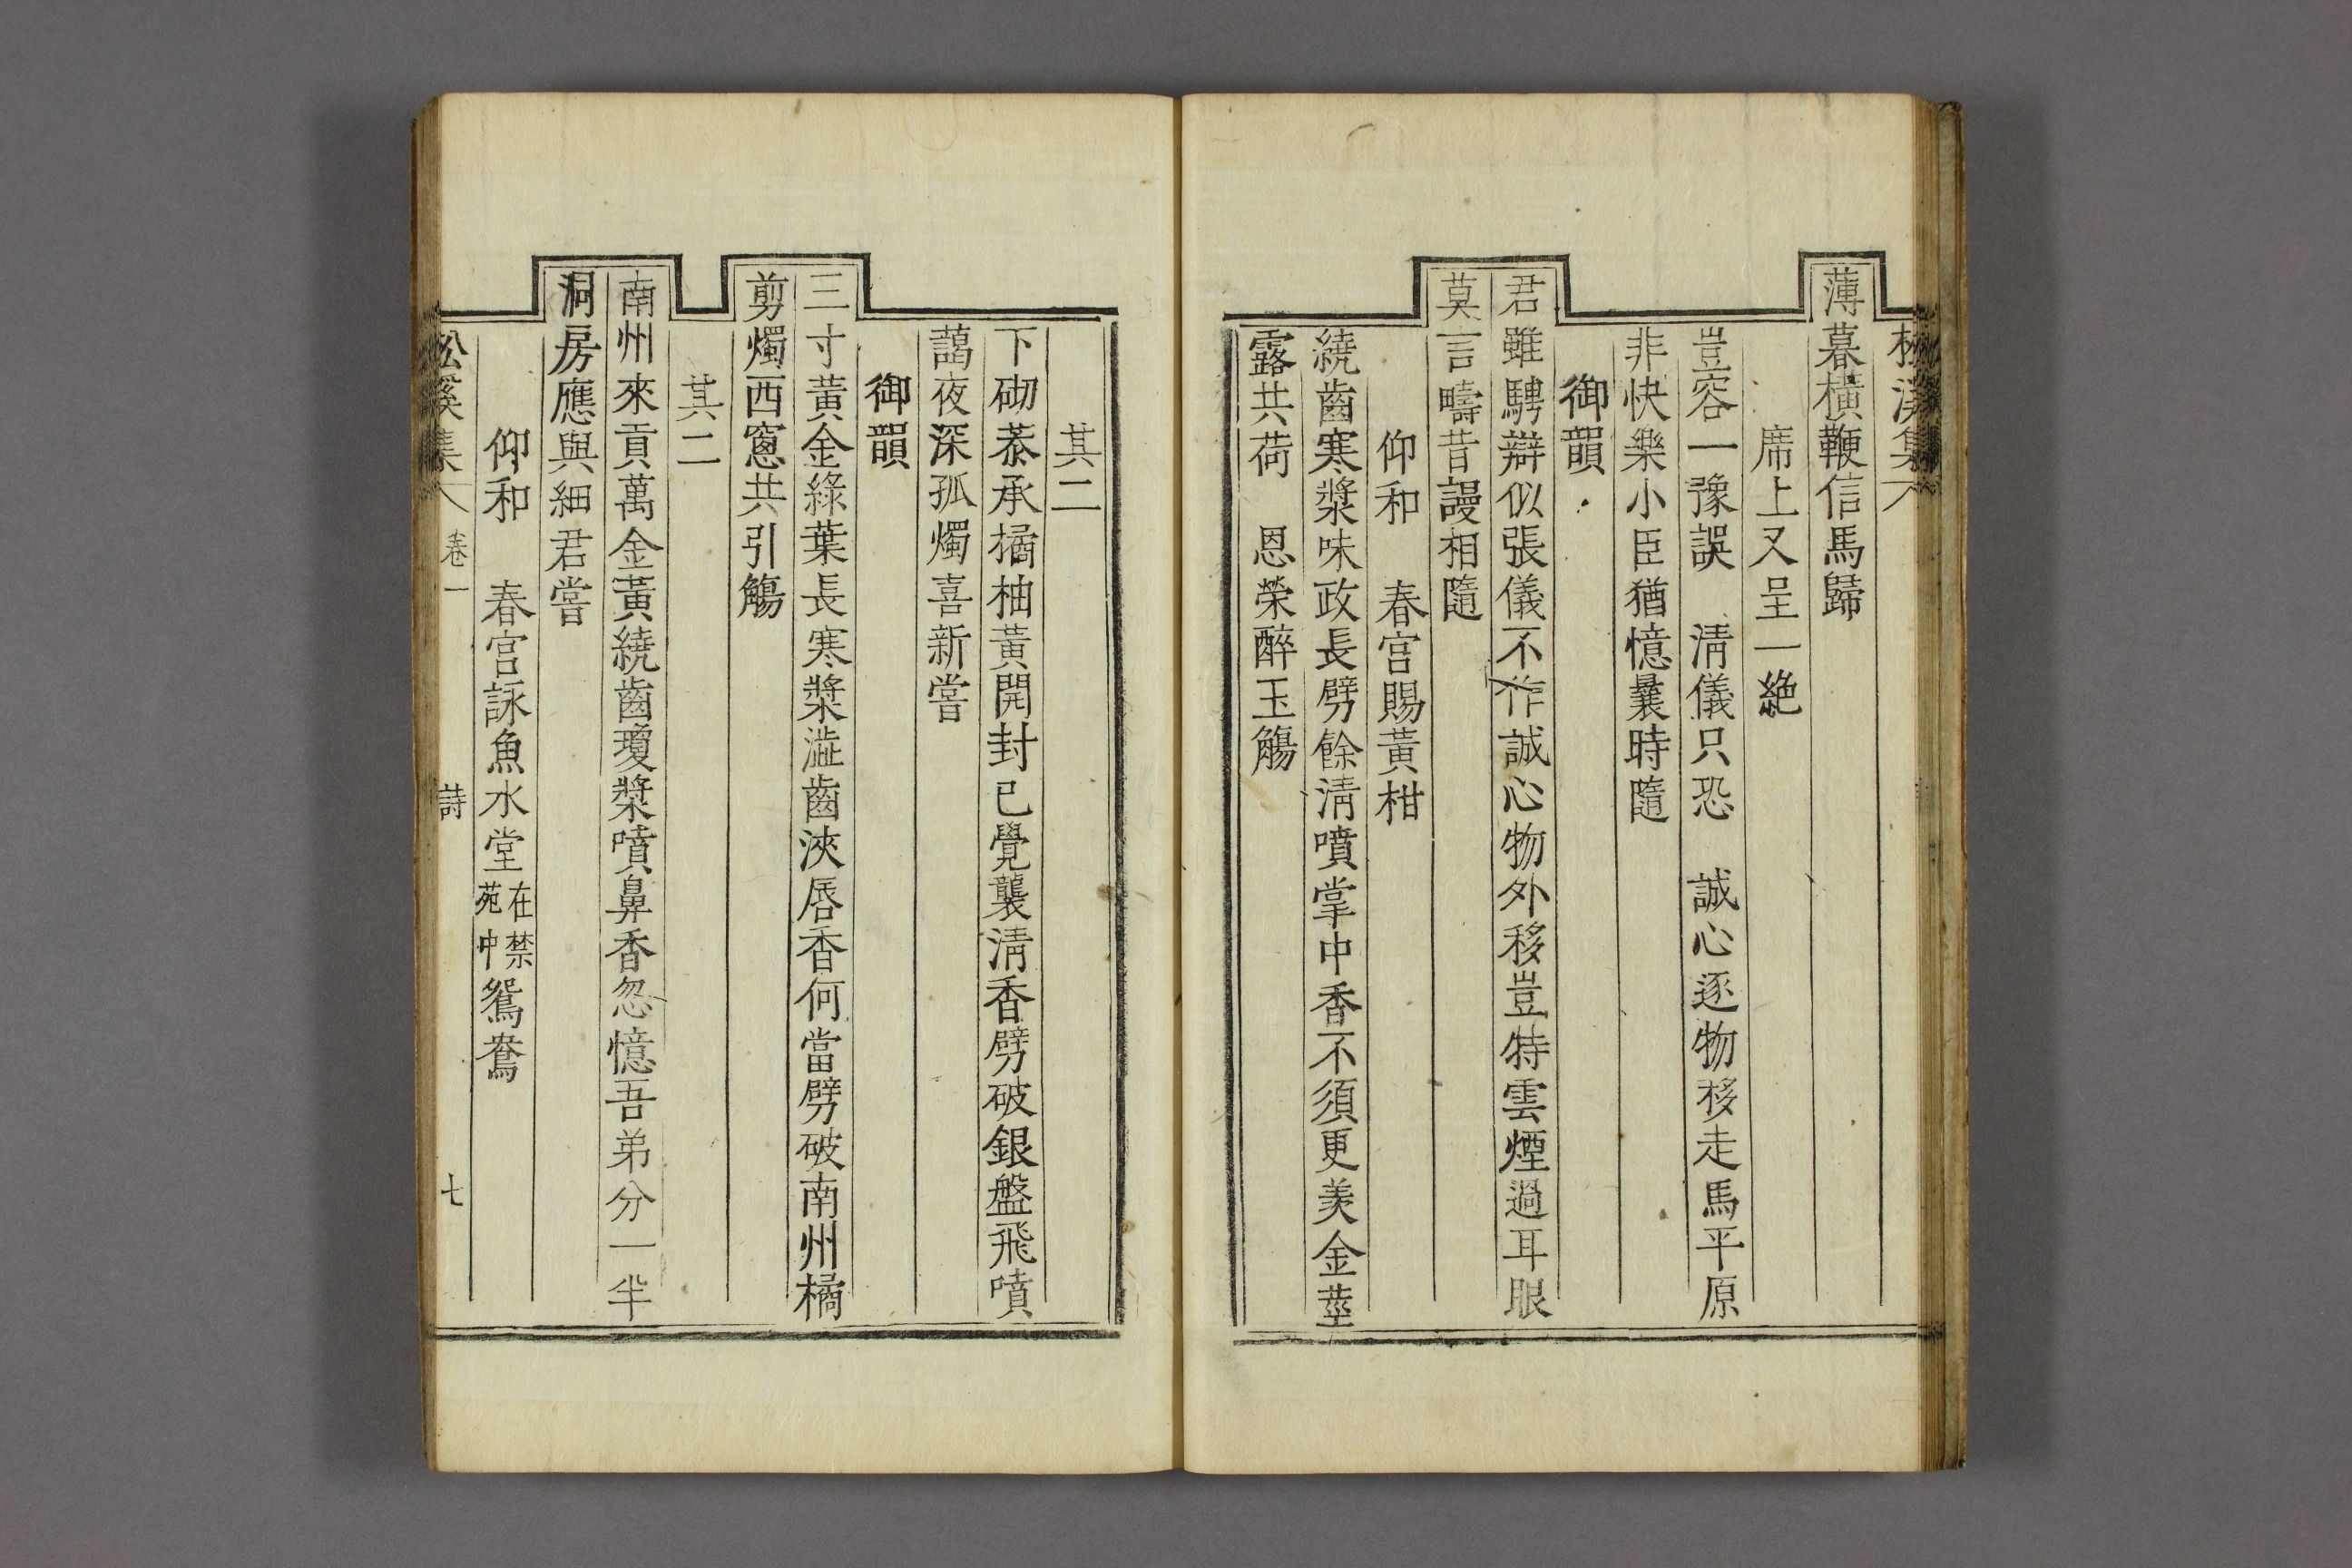 松溪集
薄暮橫鞭信馬歸
席上又呈一絶
豈容一豫誤　淸儀只恐　誠心逐物移走馬平原
非快樂小臣猶憶曩時隨
御韻
君雖騁辯似張儀不作誠心物外移豈特雲煙過耳眼
莫言疇昔謾相隨
仰和　春宮賜黃柑
繞齒寒漿味政長劈餘淸噴掌中香不須更羡金莖
露共荷　恩榮醉玉觴
其二
下砌恭承橘柚黃開封已覺襲淸香劈破銀盤飛噴
藹夜深孤燭喜新嘗
御韻
三寸黃金綠葉長寒漿澁齒浹唇香何當劈破南州橘
剪燭西窓共引觴
其二
南州來貢萬金黃繞齒瓊漿噴鼻香忽憶吾弟分一半
洞房應與細君嘗
仰和　春宮詠魚水堂在禁苑中鴛鴦
松溪集　卷一　詩　七